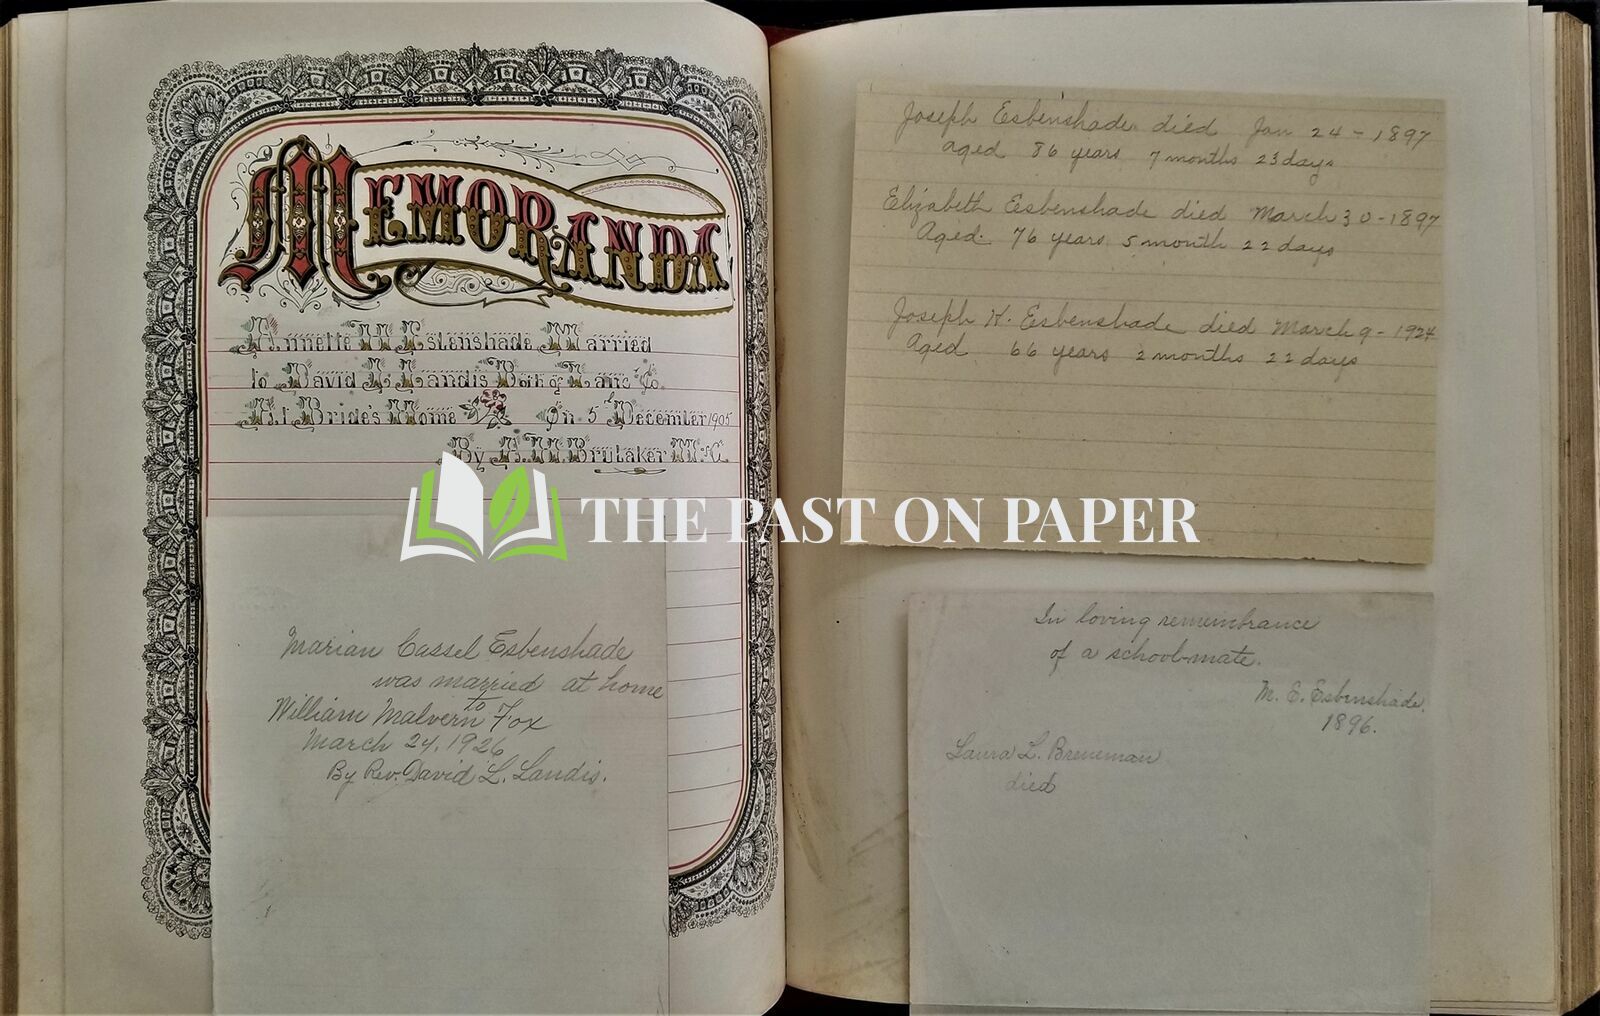 MEMORANDA
Annette W Esbenshade Married
to David L Landis Both of Lanc Co.
At Bride's Home On 5th December 1905
By H. M. Brubaker
Marian Cassel Esbenshade
was married at home
to
William Malvern Fox
March 24, 1926
By Rev. David L. Landis.
THE PAST ON PAPER
Joseph Esbenshade died Jan 24 - 1897
aged 86 years 7 months 23 days
Elizabeth Esbenshade died March 30 - 1897
Aged 76 years 5 month 22 days
Joseph K. Esbenshade died March 9 - 1924
Aged 66 years 2 months 22 days
In loving remembrance
of a school-mate.
M. E. Esbenshade.
1896.
Laura L. Breneman
died